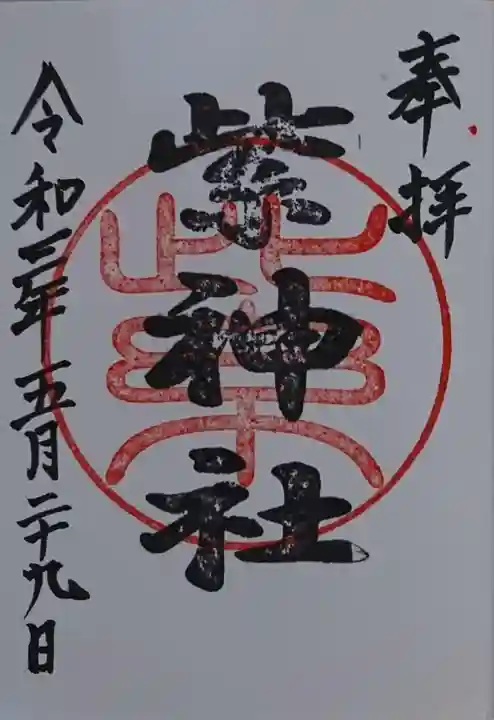 奉拝
紫神社
紫
令和三年五月二十九日